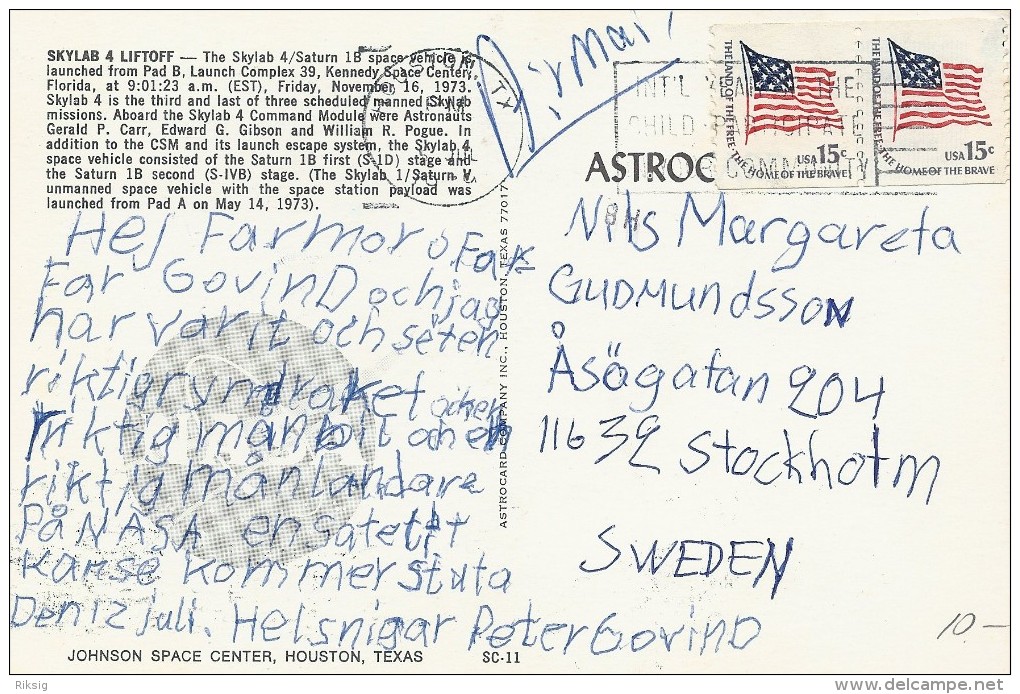 SKYLAB 4 LIFTOFF — The Skylab 4/Saturn 1B space vehicle is
launched from Pad B, Launch Complex 39, Kennedy Space Center,
Florida, at 9:01:23 a.m. (EST), Friday, November 16, 1973.
Skylab 4 is the third and last of three scheduled manned Skylab
missions. Aboard the Skylab 4 Command Module were Astronauts
Gerald P. Carr, Edward G. Gibson and William R. Pogue. In
addition to the CSM and its launch escape system, the Skylab 4
space vehicle consisted of the Saturn 1B first (S-1D) stage and
the Saturn 1B second (S-IVB) stage. (The Skylab 1/Saturn V
unmanned space vehicle with the space station payload was
launched from Pad A on May 14, 1973).
Hej Farmor o Far
Far GovinD och jag
har varit och seten
riktig ryndraket och en
riktig månbil och en
riktig månlandare
På NASA en satetlit
Kanse kommer stuta
Den 12 juli. Helsnigar Peter GovinD
JOHNSON SPACE CENTER, HOUSTON, TEXAS
SC-11
ASTROCARD COMPANY INC., HOUSTON, TEXAS 77017
Airmail!
TX
INT'L YEAR THE
CHILD PARTICIPATE
COMMUNITY
THE LAND OF THE FREE · THE HOME OF THE BRAVE
USA 15c
THE LAND OF THE FREE · THE HOME OF THE BRAVE
USA 15c
ASTROC
Nils Margareta
GUDMundssoN
Åsögatan 204
11632 Stockholm
SWEDEN
10—
Riksig
http://www.delcampe.net